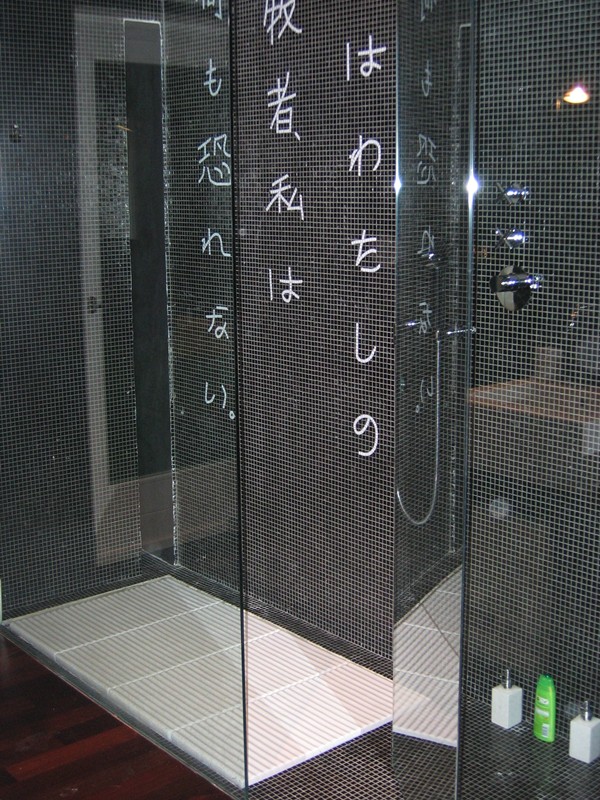 はわたしの
牧者、私は
何も恐れない。